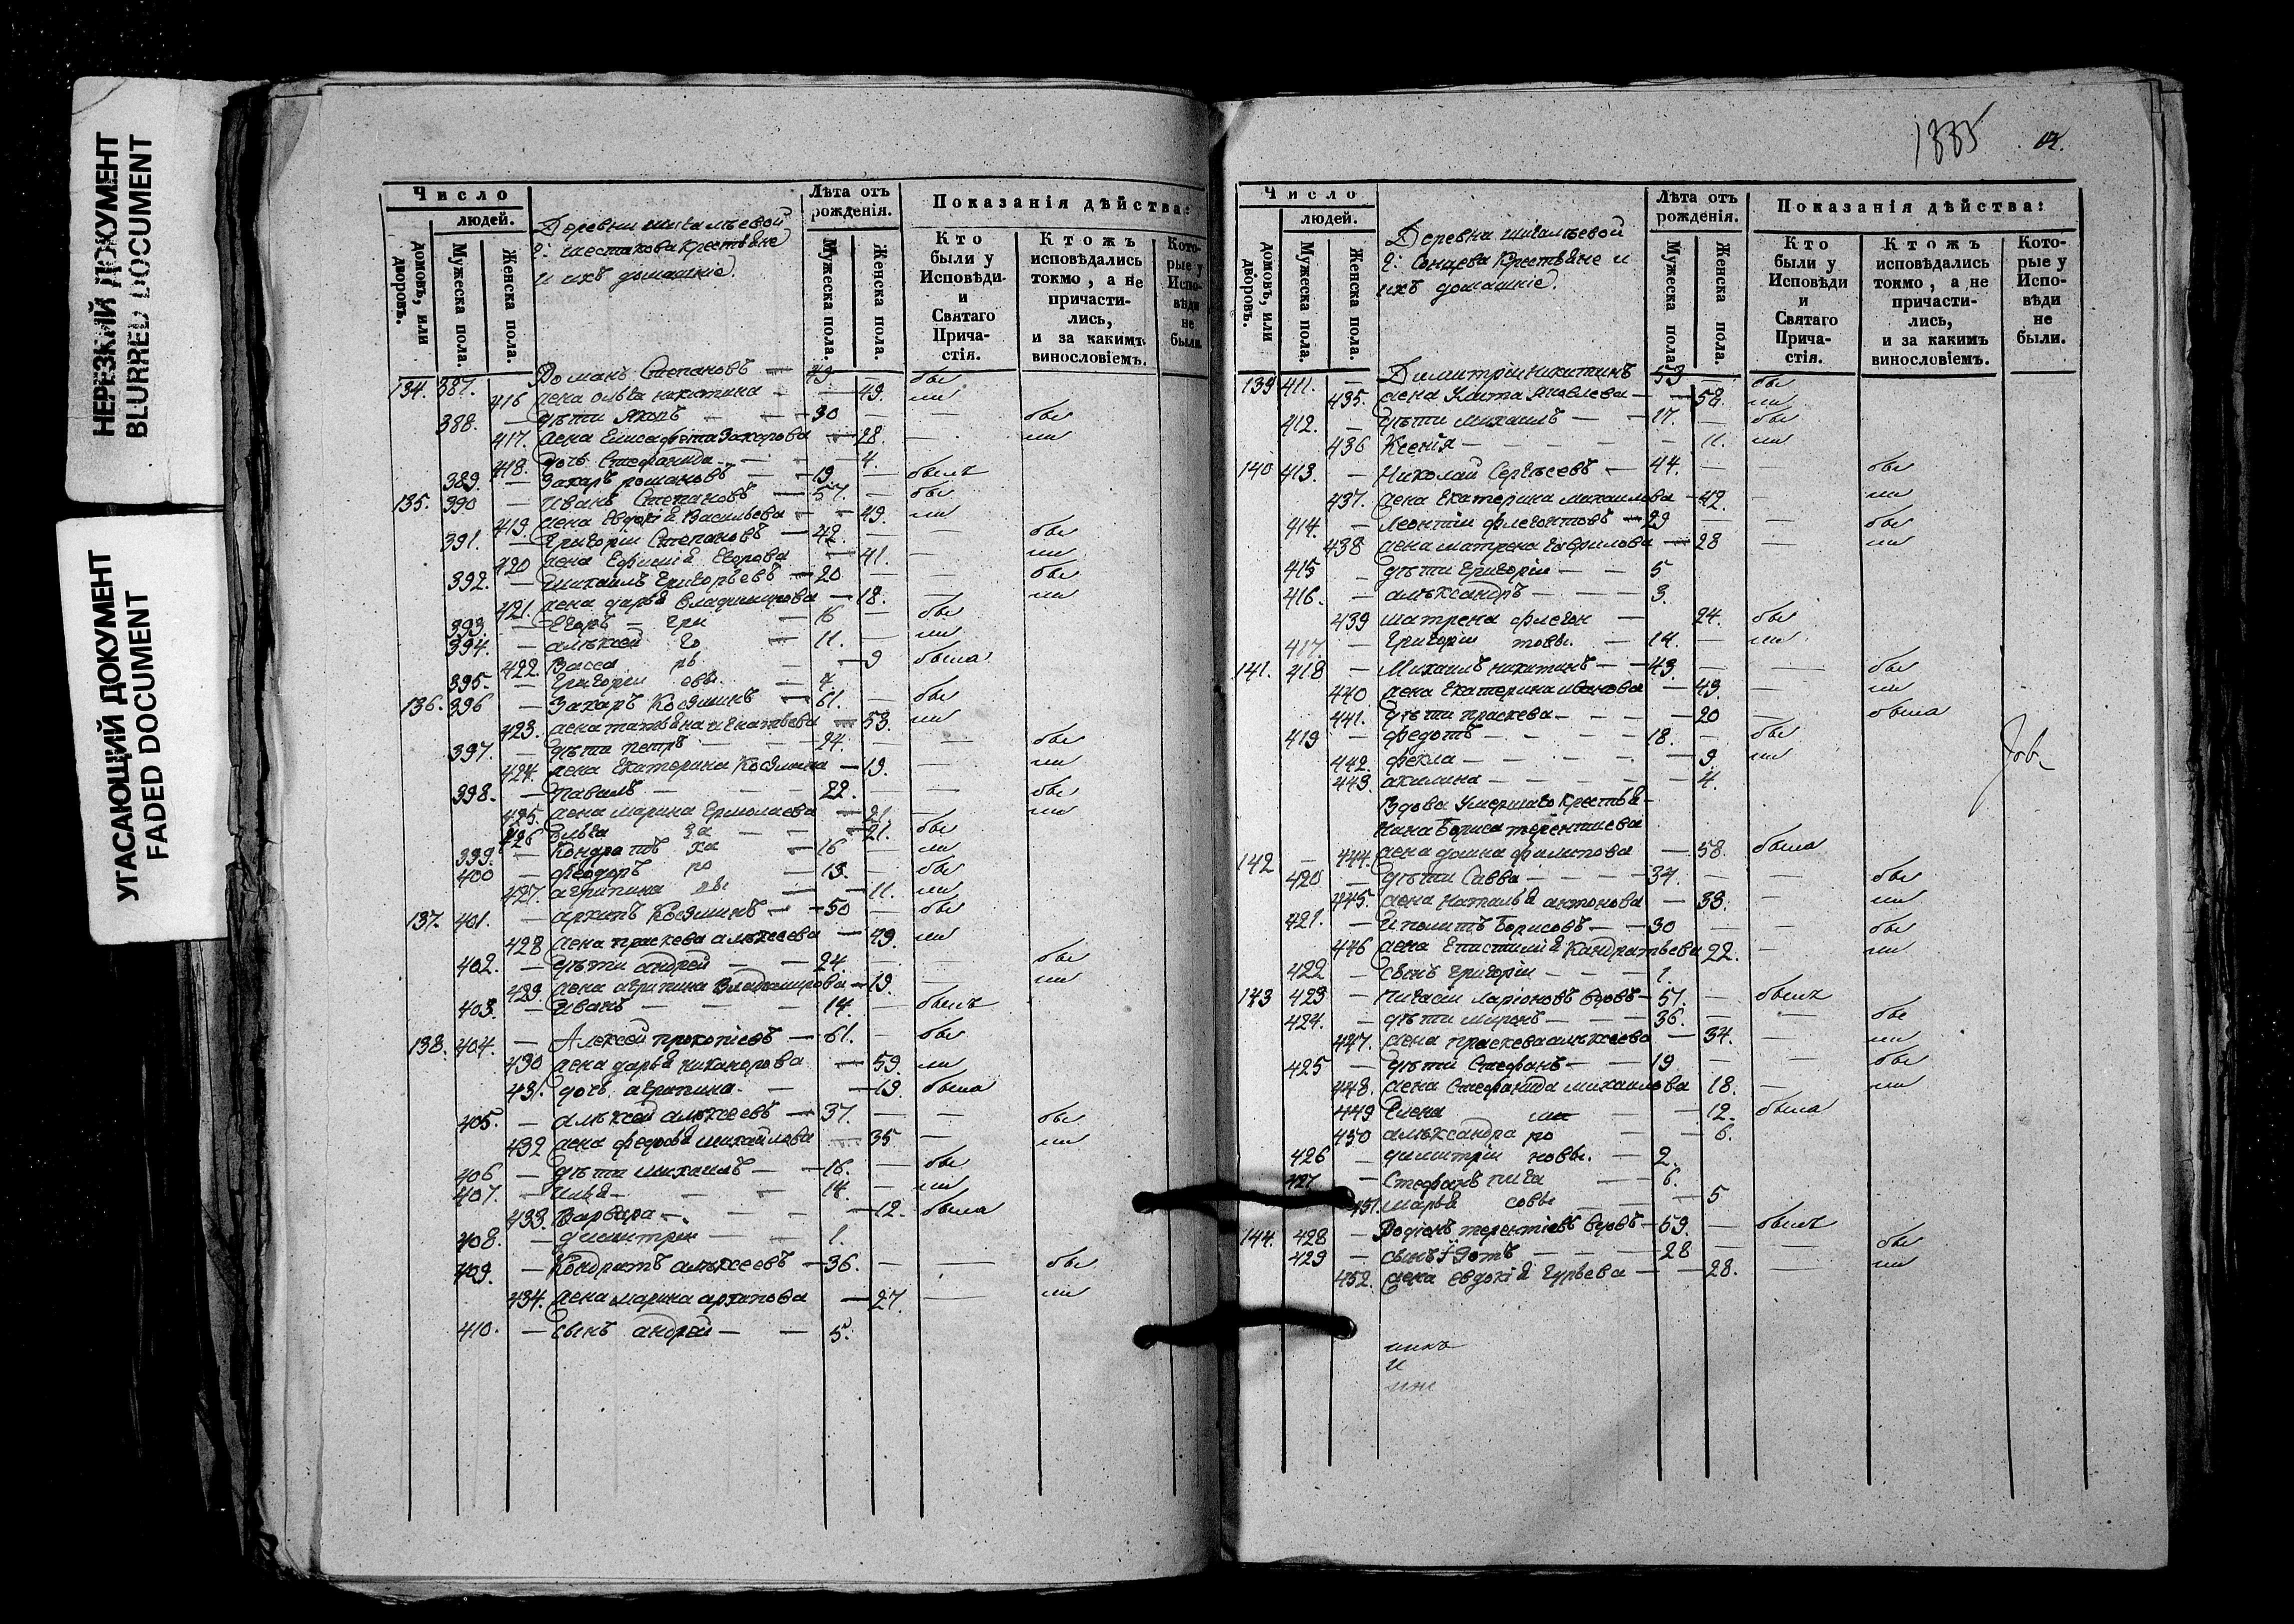 НЕРЕЗКИЙ ДОКУМЕНТ
BLURRED DOCUMENT
УГАСАЮЩИЙ ДОКУМЕНТ
FADED DOCUMENT
Число
людей.
домовъ, или дворовъ.
Мужеска пола.
Женска пола.
Деревни шигалѣевой
Г: шестакова крестьяне
и ихъ домашніе.
Лѣта отъ рожденія.
Мужеска пола.
Женска пола.
Показанія дѣйства:
Кто были у Исповѣди и Святаго Прича-стія.
Ктожъ исповѣдались токмо, а не причасти-лись, и за какимъ винословіемъ.
Кото-рые у Испо-вѣди не были.
134. 387. — Романъ Степановъ — 49 — бы
416 жена ольга никитина — 49. ли
388. — дѣти яковъ — 30 — — бы
417. жена Елисафета Захарова — 28. — ли
418. дочь Стефанида — 4.
389 — Захаръ романовъ — 19. — былъ
135. 390 — Иванъ Степановъ — 57. — бы
419. жена Евдокія Васильева — 49. ли
391. — Григорій Степановъ — 42. — бы
420 жена Ефимія Егорова — 41. — ли
392. — михаилъ Григорьевъ — 20 — — бы
421. жена дарья Владимирова — 18. — ли
393. — Егоръ — гри — 16 — бы
394. — алѣксей го — 11. — ли
422. Васса рь — 9 была
395. — Григорій евы. — 7.
136. 396 — Захаръ Козминъ — 61. — бы
423. жена татьяна игнатьева — 53. ли
397. — дѣти петръ — 24. — — бы
424. жена Екатерина Козмина — 19. — ли
398. — павелъ — 22. — — бы
425. жена марина Ермолаева — 21. — ли
426 за — 21. бы
399. — Кондратъ ха — 16 — ли
400 — феодоръ ро — 13. — бы
427. агрипина вы — 11. ли
137. 401. — архипъ Козминъ — 50 — бы
428 жена праскева алѣксеева — 49. ли
402. — дѣти андрей — 24. — — бы
429. жена агрипина Владимирова — 19. — ли
403. — Иванъ — 14. — былъ
138. 404. — Алексей прокопіевъ — 61. — бы
430 жена дарья никанорова — 59. ли
431. дочь агрипина. — 19. была
405. — алѣксей алѣксеевъ — 37. — — бы
432 жена федосья михайлова — 35 — ли
406 — дѣти михаилъ — 16. — бы
407. — илья — 14. — ли
433. Варвара — 12. была
408. — димитрий — 1.
409. — Кондратъ алѣксеевъ — 36. — — бы
434. жена марина архипова — 27. — ли
410. — сынъ андрей — 5.
1885
Число
людей.
домовъ, или дворовъ.
Мужеска пола.
Женска пола.
Деревни шигалѣевой
Г: Сонцева Крестьяне и
ихъ домашніе.
Лѣта отъ рожденія.
Мужеска пола.
Женска пола.
Показанія дѣйства:
Кто были у Исповѣди и Святаго Прича-стія.
Ктожъ исповѣдались токмо, а не причасти-лись, и за какимъ винословіемъ.
Кото-рые у Испо-вѣди не были.
139 411. — Димитрій никитинъ 53 — бы
435. жена Улита яковлева — 58. ли
412. — дѣти михаилъ — 17. — бы
436 Ксенія — 11. ли
140 413. — Николай Сергѣевъ — 44. — — бы
437. жена Екатерина михаилова — 42. — ли
414. — Леонтій флегонтовъ — 29 — — бы
438 жена матрена Гаврилова — 28 — ли
415 — дѣти григорій — 5
416. — алѣксандръ — 3.
439 матрена флегон — 24. бы
417. — Григорій товы. — 14. — ли
141. 418 — Михаилъ никитинъ — 43. — — бы
440 жена Екатерина иванова — 43. — ли
441. дѣти праскева — 20 — была
419 — федотъ — 18. — бы
442. фекла — 9 ли
443. акилина — 4.
Вдова Умершаго Крестья-
нина Бориса терентиева
142 — 444. жена домна филипова — 58. была
420 — дѣти Савва — 37. — — бы
445. жена наталья антонова — 33. — ли
421. — Иполитъ Борисовъ — 30 — — бы
446 жена Епистимія Кандратьева 22. — ли
422 — сынъ Григорій — 1.
143 423 — пигасій ларіоновъ вдовъ — 51. — былъ
424. — дѣти миронъ — 36. — — бы
447. жена праскева алѣксеева — 34. — ли
425 — дѣти Стефанъ — 19 — — бы
448. жена Стефанида михаилова 18. — ли
449 Елена ми — 12. была
450 алѣксандра ро — 6.
426 — димитрій новы. — 2.
427 — Стефанъ пига — 6.
451. марья совы — 5
144. 428 — Родіонъ терентіевъ вдовъ — 59. — былъ
429 — сынъ — 28 — — бы
452. жена евдокія Гурьева — 28. — ли